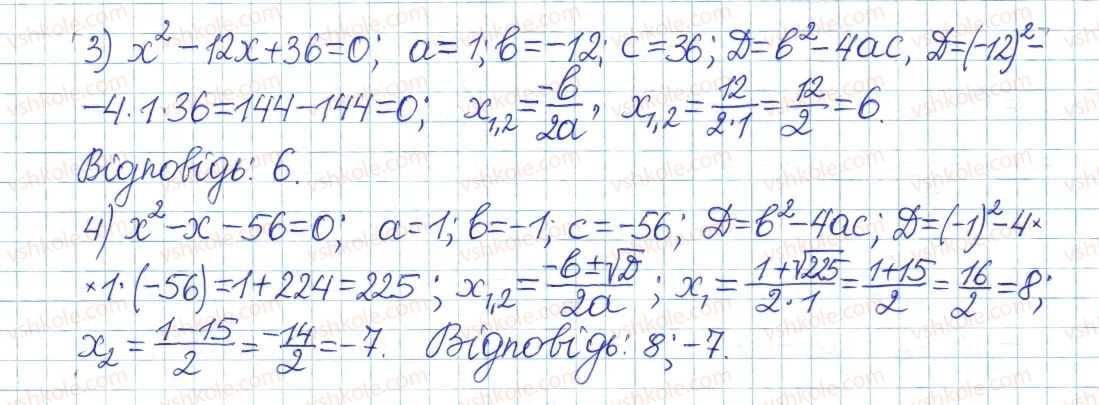 3) x² − 12x + 36 = 0; a = 1; b = −12; c = 36; D = b² − 4ac, D = (−12)² −
− 4 · 1 · 36 = 144 − 144 = 0; x₁,₂ = −b/2a, x₁,₂ = 12/2·1 = 12/2 = 6.
Відповідь: 6.
4) x² − x − 56 = 0; a = 1; b = −1; c = −56; D = b² − 4ac; D = (−1)² − 4 ×
× 1 · (−56) = 1 + 224 = 225; x₁,₂ = −b ± √D/2a; x₁ = 1 + √225/2·1 = 1 + 15/2 = 16/2 = 8;
x₂ = 1 − 15/2 = −14/2 = −7. Відповідь: 8; −7.